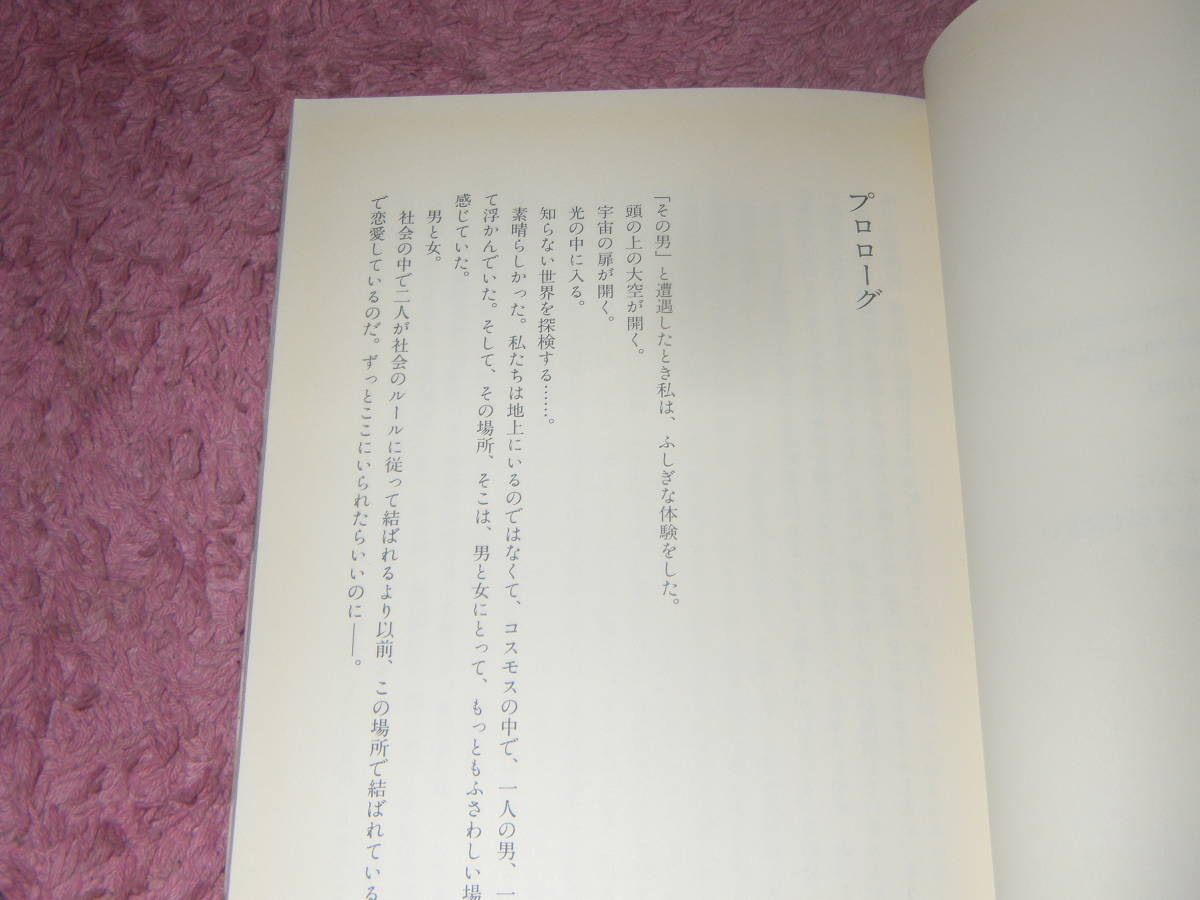 プロローグ
「その男」と遭遇したとき私は、ふしぎな体験をした。
頭の上の大空が開く。
宇宙の扉が開く。
光の中に入る。
知らない世界を探検する……。
素晴らしかった。私たちは地上にいるのではなくて、コスモスの中で、一人の男、一
て浮かんでいた。そして、その場所、そこは、男と女にとって、もっともふさわしい場
感じていた。
男と女。
社会の中で二人が社会のルールに従って結ばれるより以前、この場所で結ばれている
で恋愛しているのだ。ずっとここにいられたらいいのに――。